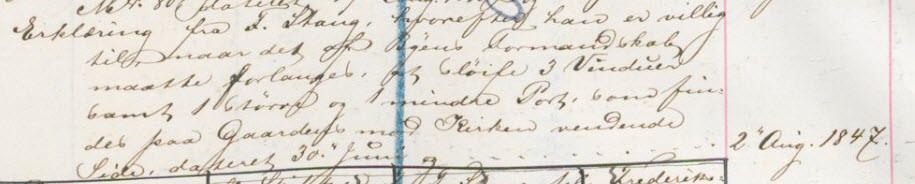 Erklæring fra T. Thaug, hvorefter han er villig
til, naar det af Byens Formandskab
maatte forlanges, at sløife 3 Vinduer
samt 1 större og 1 mindre Port, som fin-
des paa Gaardens mod Kirken vendende
Side, dateret 30. Juni 2den Aug. 1847.
Frederiks-